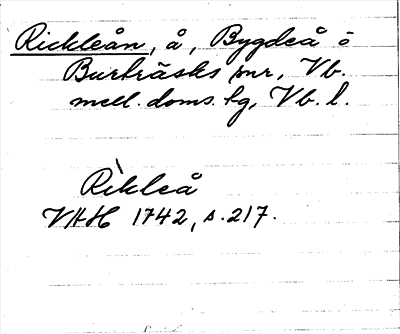 Rickleån, å, Bygdeå o
Burträsks snr, Vb.
mell. doms. hg, Vb. l.
Rìkleå
VHH 1742, s. 217.